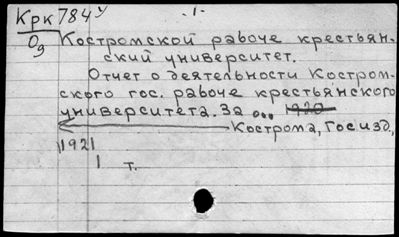 Крк 784у
Од
- 1 -
Костромской рабоче крестьян-
ский университет.
Отчет о деятельности Костром-
ского гос. рабоче крестьянского
университета. За ... 1920
Кострома, Госизд.,
1921
1 т.